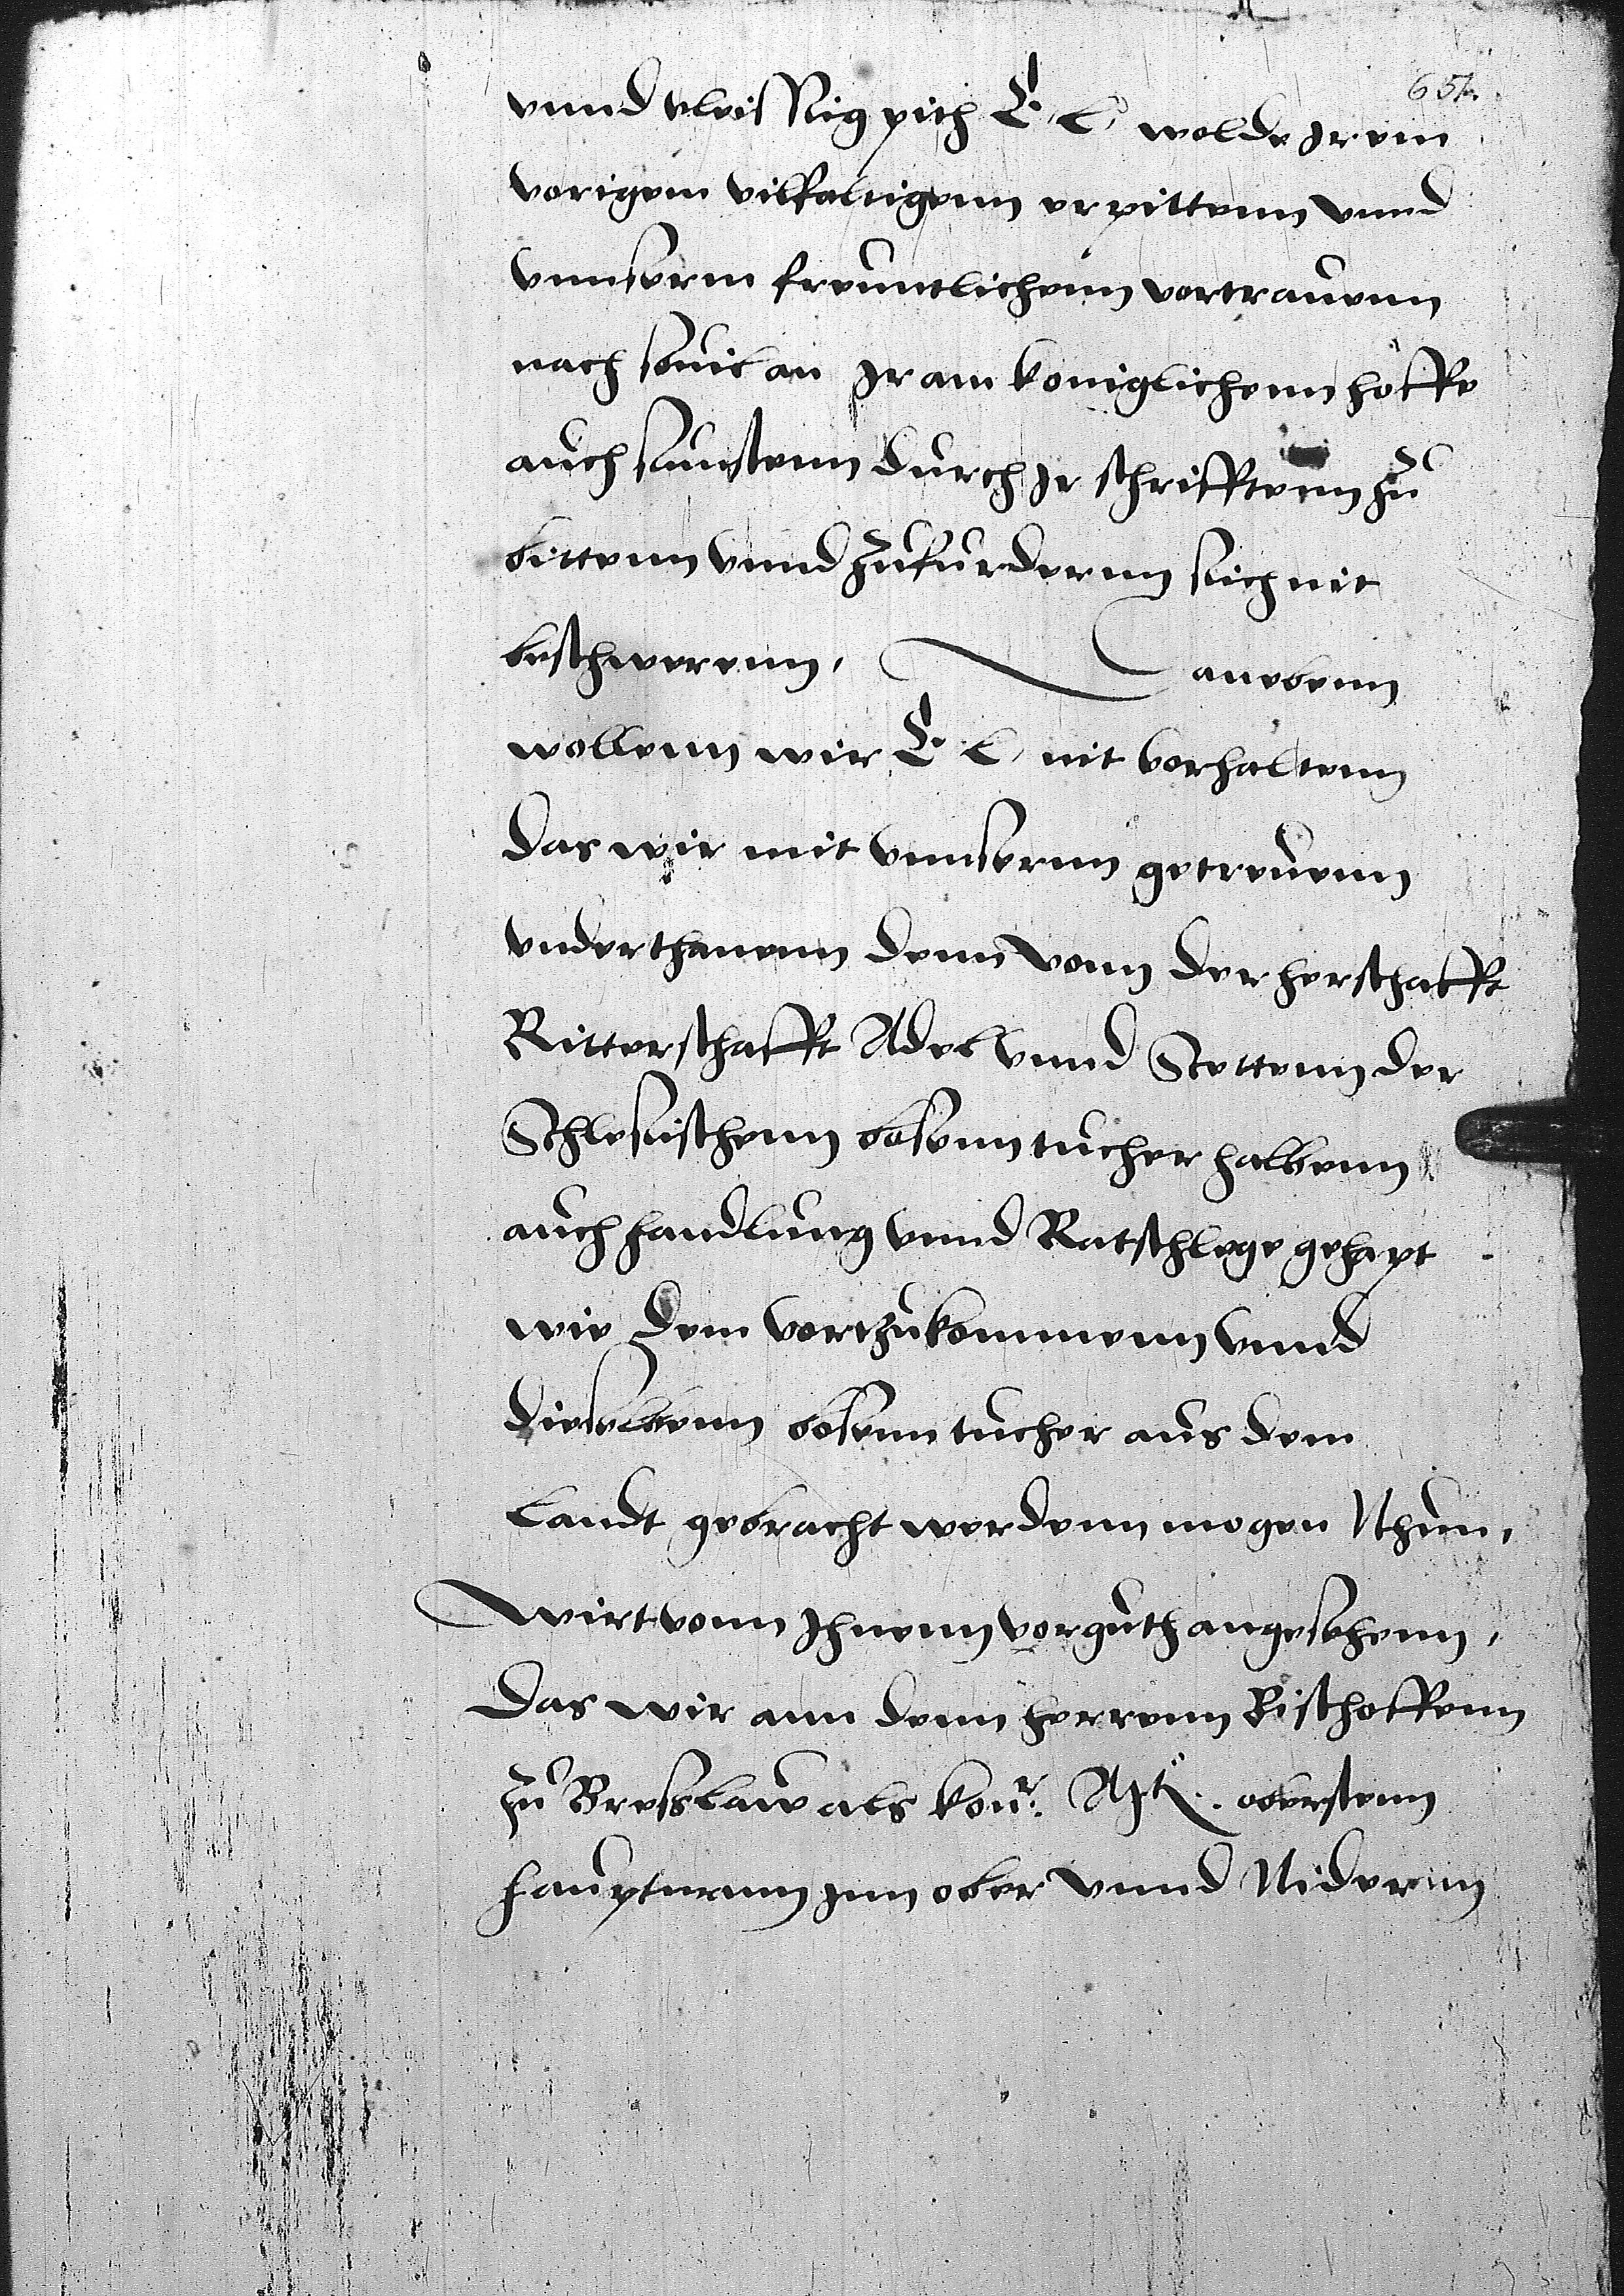 65
vnnd vleissig pith E. L. wolde Jrem
vorigem vilfaltigenn erpittenn vnnd
vnnserm freuntlichenn vortrauenn
nach souil an Jr am koniglichenn hoffe
auch sunstenn durch Jr schrifftenn zu
bittenn vnnd zufurdernn sich nit
beschwerenn, Danebenn
wollenn wir E. L. nit vorhaltenn
Das wir mit vnnsernn getreuenn
vnderthanenn denn vonn der herschafft
Ritterschafft Adel vnnd Stettenn der
Schlesischenn bosenn tucher halbenn
auch handlung vnnd Ratschlege gehapt
wie dem vortzukommenn vnnd
dieselbenn bosenn tucher aus dem
Landt gebracht werdenn mogen Nhun,
Wirt vonn Jhnenn vorguth angesehenn,
Das wir ann denn herrenn Bischoffenn
zu Bresslaw als konr. Mt. oberstenn
hauptmann Jnn ober vnnd Nidernn